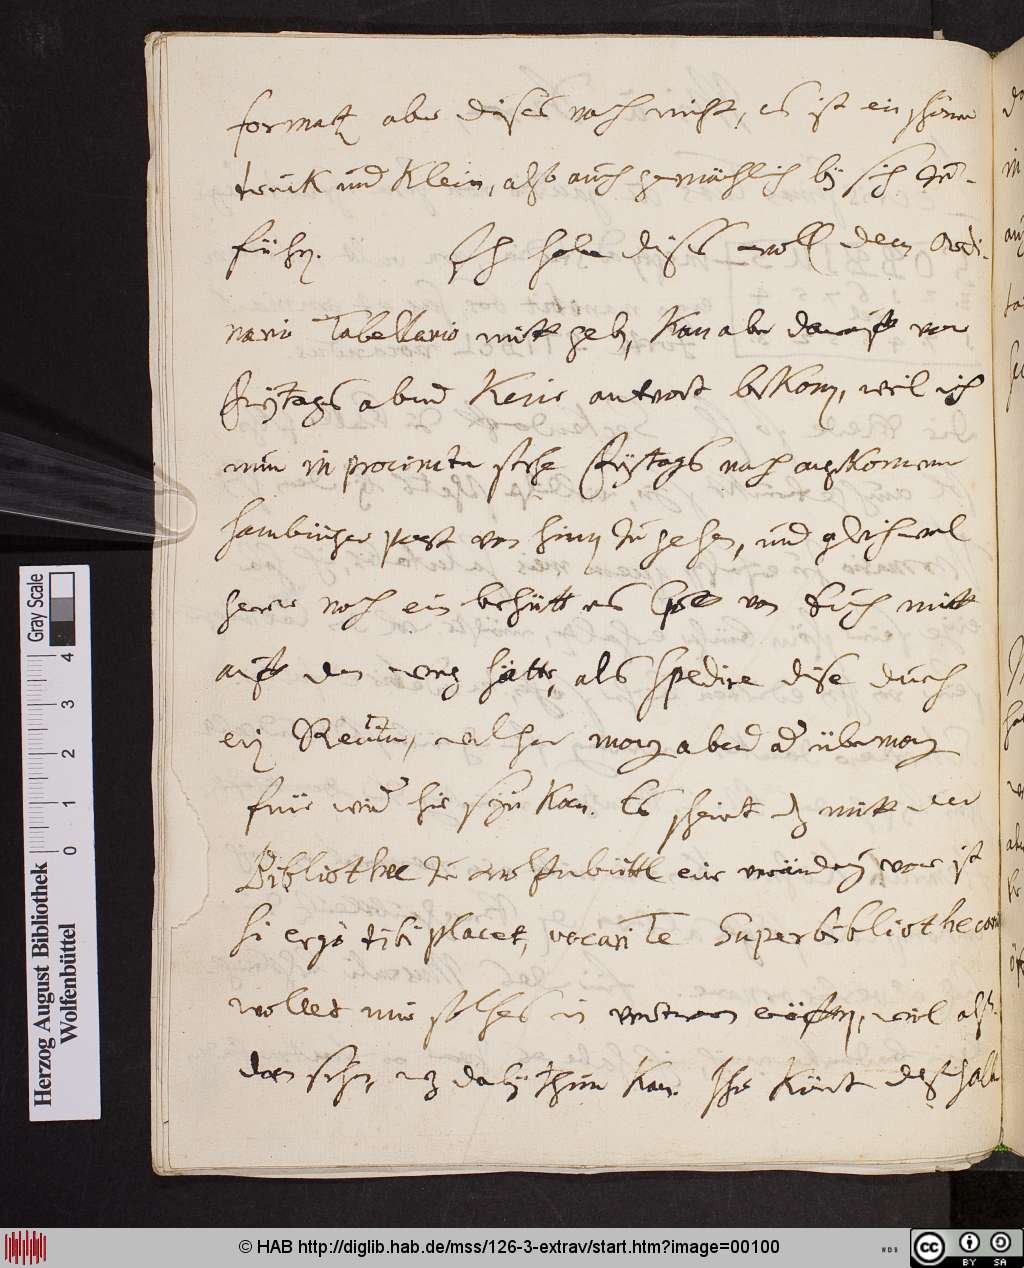 formatt aber dises noch nicht, es ist ein schöner
truck und Klein, also auch gemächlich bÿ sich zu
führ.   Ich habe dises woll dem Ordi-
nario Tabellario mitt geb, Kan aber darauff vor
Freÿtags abend Keine antwort bekom, weil ich
nun in procinctu stehe Freÿtags nach angekommener
hamburger post von hinn zu gehen, und gleichwol
gerne noch ein von Euch mitt
auff den weg hätte, als spedire dise durch
ein Reuter, welcher morg abend od übermorg
früe wid hie seÿn Kan. Es scheint dz mitt der
Bibliothec zu wolfenbüttl eine veränderg vor ist
si ergo tibi placet, vocari Te Superbibliothecari
wollet mir solches in vertrauen eröffn, weil alß
dan sehn, wz dabeÿ thun Kan. Ihr Könt deßhalb
Gray Scale
4
3
2
1
0
Herzog August Bibliothek
Wolfenbüttel
© HAB http://diglib.hab.de/mss/126-3-extrav/start.htm?image=00100
WDB
CC BY SA